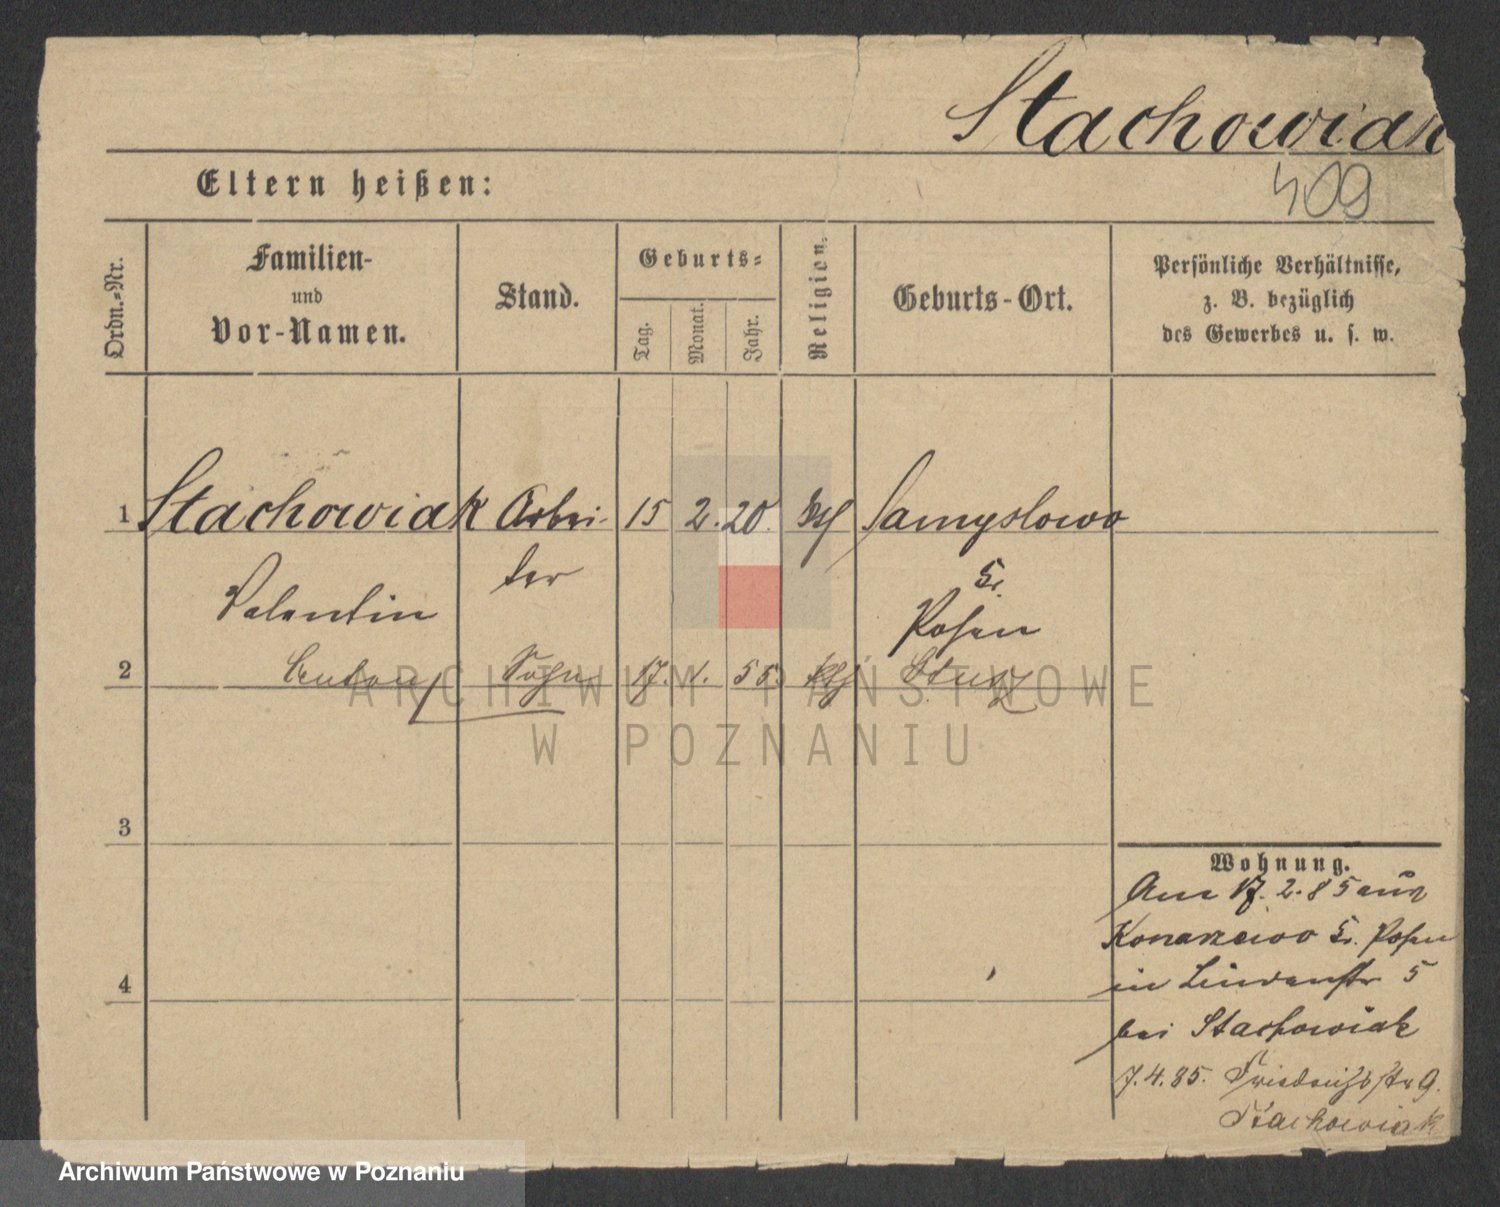 Stachowiak
409
Eltern heißen:
Ordn.=Nr.
Familien-
und
Vor-Namen.
Stand.
Geburts=
Tag.
Monat.
Jahr.
Religion.
Geburts-Ort.
Persönliche Verhältnisse,
z. B. bezüglich
des Gewerbes u. s. w.
1 Stachowiak Arbei- 15 2. 20. kth Samyslowo
ter Kr.
Valentin Posen
2 Anton Sohn 17. 1. 55. kth
ARCHIWUM PAŃSTWOWE
W POZNANIU
3
Wohnung.
Am 17. 2. 85 aus
Konarzewo Kr. Posen
4
in Lindenstr 5
bei Stachowiak
7.4.85. Friedrichstr 9.
Stachowiak
Archiwum Państwowe w Poznaniu